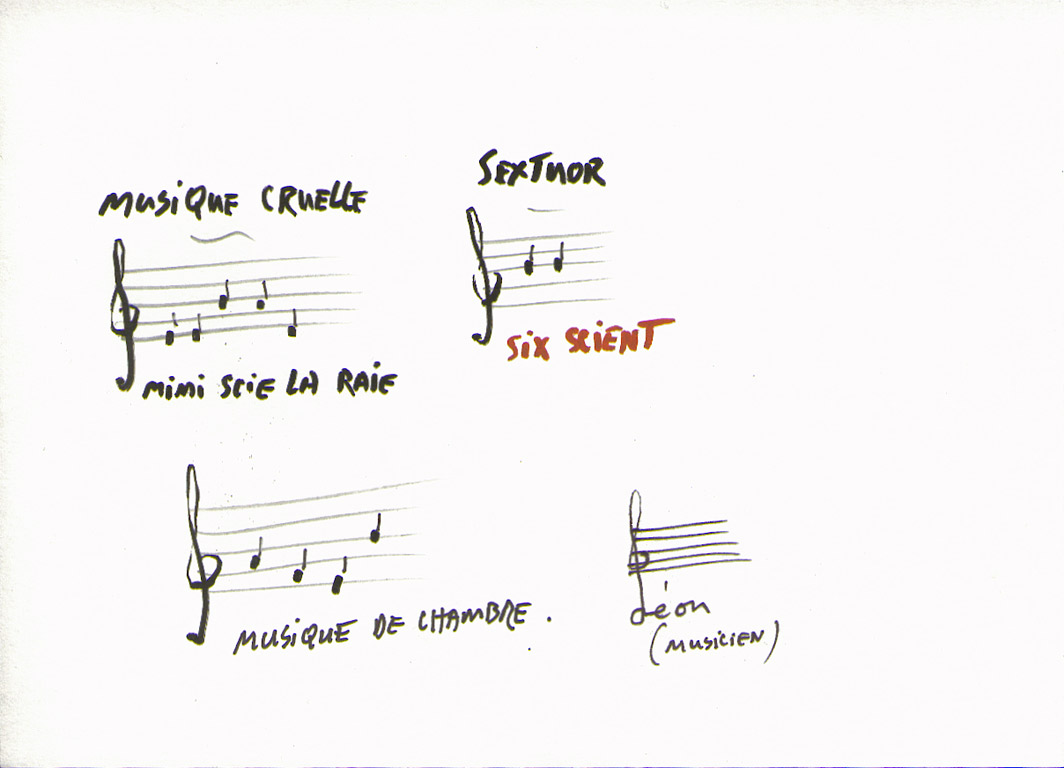 MUSIQUE CRUELLE
MIMI SCIE LA RAIE
SEXTUOR
SIX SCIENT
MUSIQUE DE CHAMBRE.
Léon
(MUSICIEN)